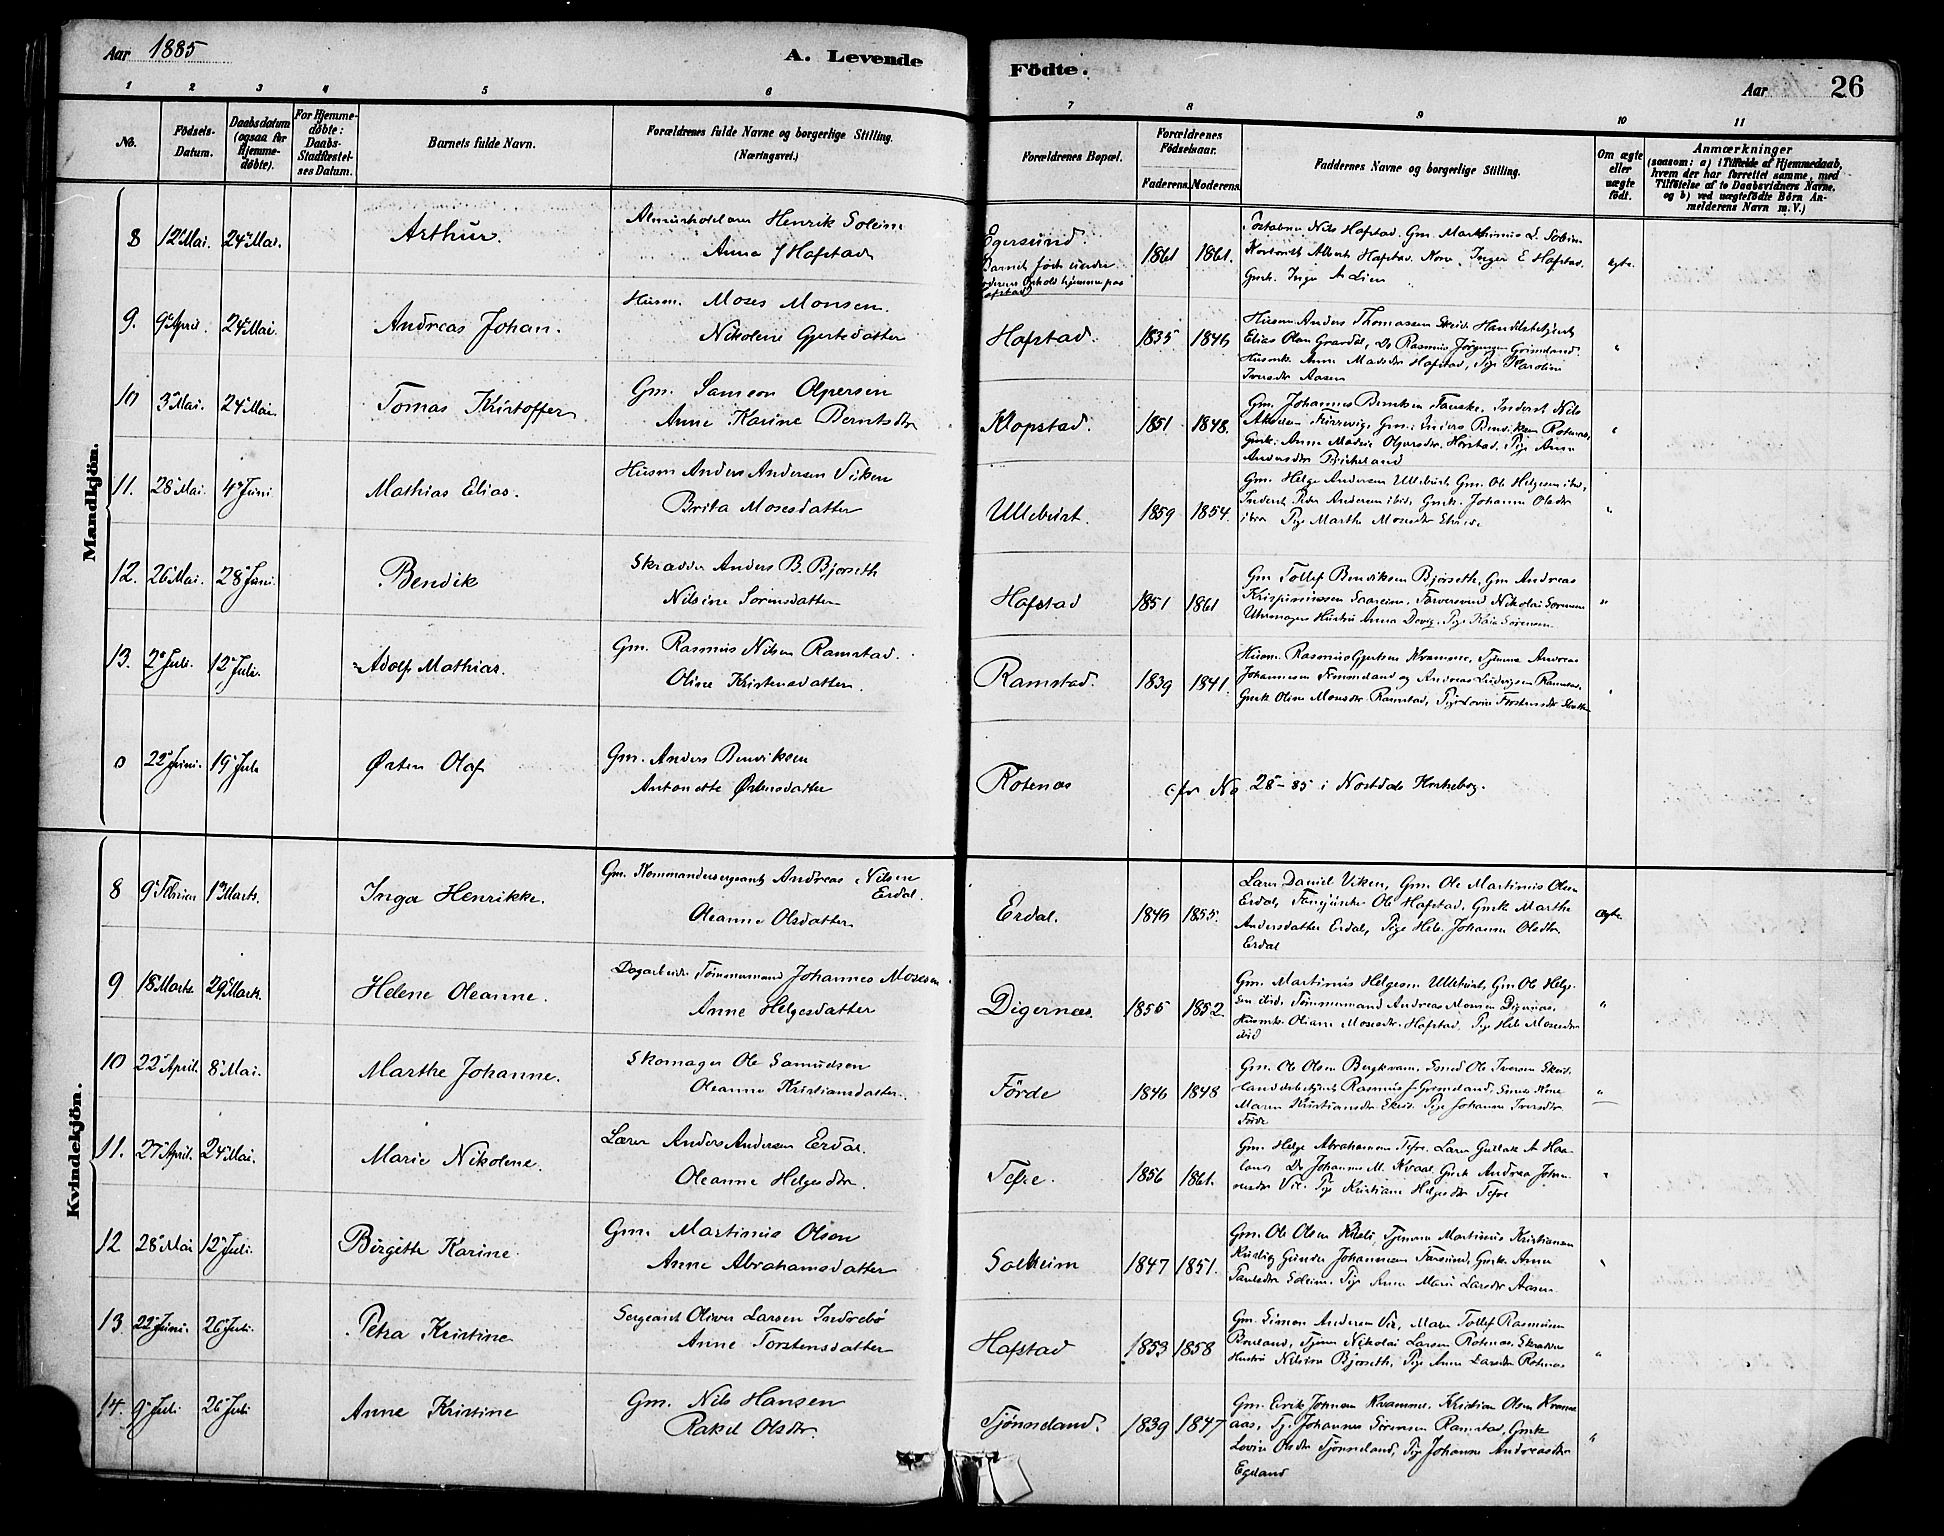 Aar 1885
A. Levende
Födte.
Aar
26
1 2 3 4 5 6 7 8 9 10 11
No.
Födsels-Datum.
Daabsdatum (ogsaa for Hjemme-døbte).
For Hjemme-døbte: Daabs-Stadfæstel-ses Datum.
Barnets fulde Navn.
Forældrenes fulde Navne og borgerlige Stilling. (Næringsvei.)
Forældrenes Bopæl.
Forældrenes Födselsaar.
Faderens. Moderens.
Faddernes Navne og borgerlige Stilling.
Om ægte eller uægte födt.
Anmærkninger
(saasom: a) i Tilfælde af Hjemmedaab, hvem der har forrettet samme, med Tilföielse af to Daabsvidners Navne, og b) ved uægtefödte Börn An-melderens Navn m. V.)
Mandkjön.
8 12 Mai. 24 Mai. Arthur. Henrik Soleim
Anna J Hafstad
Egersund.
1861 1861.
Nils Hafstad. Gm. Marthinus L. Soleim
Albert Hafstad. Kone Inger E Hafstad.
Gmk. Inga A Lien
ægte.
9. 9 April. 24 Mai. Andreas Johan.
Husm. Moses Monsen.
Nikolene Gjertsdatter
Hafstad. 1835 1846
Husm Anders Thomassen Skeid. Handelsbetjent
Rasmus Jørgensen Grimeland.
Husmk. Anne Madsdtr Hafstad, Pige Karoline
Iversdtr Aasen
10 3 Mai. 24 Mai. Tomas Kristoffer
Gm. Samson Olpersen
Anne Karine Berntsdtr
Klopstad. 1851 1848.
Gm. Johannes
Anders Bendiksen Rotenæs,
Pige Anne
Andersdtr Birkeland
11. 28 Mai. 4 Juni Mathias Elias.
Husm Anders Andersen Viken
Brita Mosesdatter
Ulleburst. 1859 1854.
Gm. Helge Andersen Ulleburst Gm. Ole Helgesen ibid,
Inderst Peder Andersen ibid, Gmk. Johanne Olsdtr
ibid Pige Marthe Mosesdtr
12. 26 Mai. 28 Juni. Bendik
Skrædder Anders B. Bjørseth
Nilsine Sørensdatter
Hafstad 1851 1861
Gm Tollef Bendiksen Bjørseth, Gm Andreas
Nikolai Sørensen
Uhrmager Hustru Anna Døvig. Pige Kaia Sørensen.
13. 2 Juli. 12 Juli. Adolf Mathias.
Gm. Rasmus Nilsen Ramstad.
Oline Kristensdatter.
Ramstad. 1839 1841.
Husm. Rasmus Gjertsen Kvamme, Tjener Andreas
Johannesen og Andreas Ludvigsen Ramstad,
Gmk Olina Monsdtr Ramstad,
0 22 Juni. 19 Juli Østen Olaf
Gm. Anders Bendiksen
Antonette Østensdatter
Rotenæs
cfr No 28-85 i Kirkebog.
Kvindekjön.
8 9 Februar 1 Marts. Inga Henrikke.
Gm. Kommandersergeant Andreas Nilsen
Erdal.
Oleanne Olsdatter
Erdal. 1846 1855.
Lærer Daniel Viken, Gm Ole Martinus Olsen
Erdal, Ole Hafstad, Gmk Marthe
Andersdatter Erdal, Pige Johanne Olsdtr
Erdal
ægte
9 18 Marts 29 Marts. Helene Oleanne.
Dagarbeider Tømmermand Johannes Mosesen.
Anne Helgesdatter
Digernæs. 1855 1852
Gm. Martinus Helgesen Ulleburst, Gm Ole Helge-
sen ibid, Tømmermand Andreas Monsen Digernæs,
Husmk. Oliane Mosesdtr Hafstad, Pige Mosesdtr
ibid
10 22 April. 8 Mai. Marthe Johanne.
Skomager Ole Samuelsen
Oleanne Kristiansdatter.
Förde 1846 1848
Gm. Ole Olsen Bergkvam, Smed Ole Iversen Skeid,
Handelsbetjent Rasmus J. Grimeland,
Maren Kristiansdtr Skeid. Pige Johanne Iversdtr
Förde
11. 27 April. 24 Mai. Marie Nikolene.
Lærer Anders Andersen Erdal
Oleanne Helgesdtr.
Tefre. 1856 1861.
Gm. Helge Abrahamsen Tefre. Lærer Gutlak A Haa-
land, Do Johannes M. Kvaal, Gmk Andrea Johan-
nesdtr Vie. Pige Kristiane Helgesdtr Tefre
12 28 Mai 12 Juli. Birgithe Karine.
Gm. Martinus Olson
Anne Abrahamsdatter
Solheim 1847 1851.
Gm. Ole Olsen Tjener Martinus Kristiansen
Gmk. Anne
Soleim. Pige Anne Marie Larsdtr Aasen
13 22 Juni. 26 Juli. Petra Kristine
Sergeant Oliver Larsen Indrebø
Anne Torstensdatter
Hafstad 1853 1858
Gm. Simon Andersen Vie, Tollef Rasmussen
Bruland, Tjener Nikolai Larsen Rotenæs, Skrædder
Hustru Nilsine Bjørseth, Pige Anne Larsdtr Rotenæs
14. 9 Juli 26 Juli Anne Kristine
Gm. Nils Hansen
Rakel Olsdtr.
Tjønneland. 1839 1847
Gm. Eirik Johnsen Kvamme, Kristian Olsen Kvamme
aas, Johannes Sørensen Ramstad, Gmk
Lovise Olsdtr Tjønneland, Pige Johanne Andreasdtr
Egeland